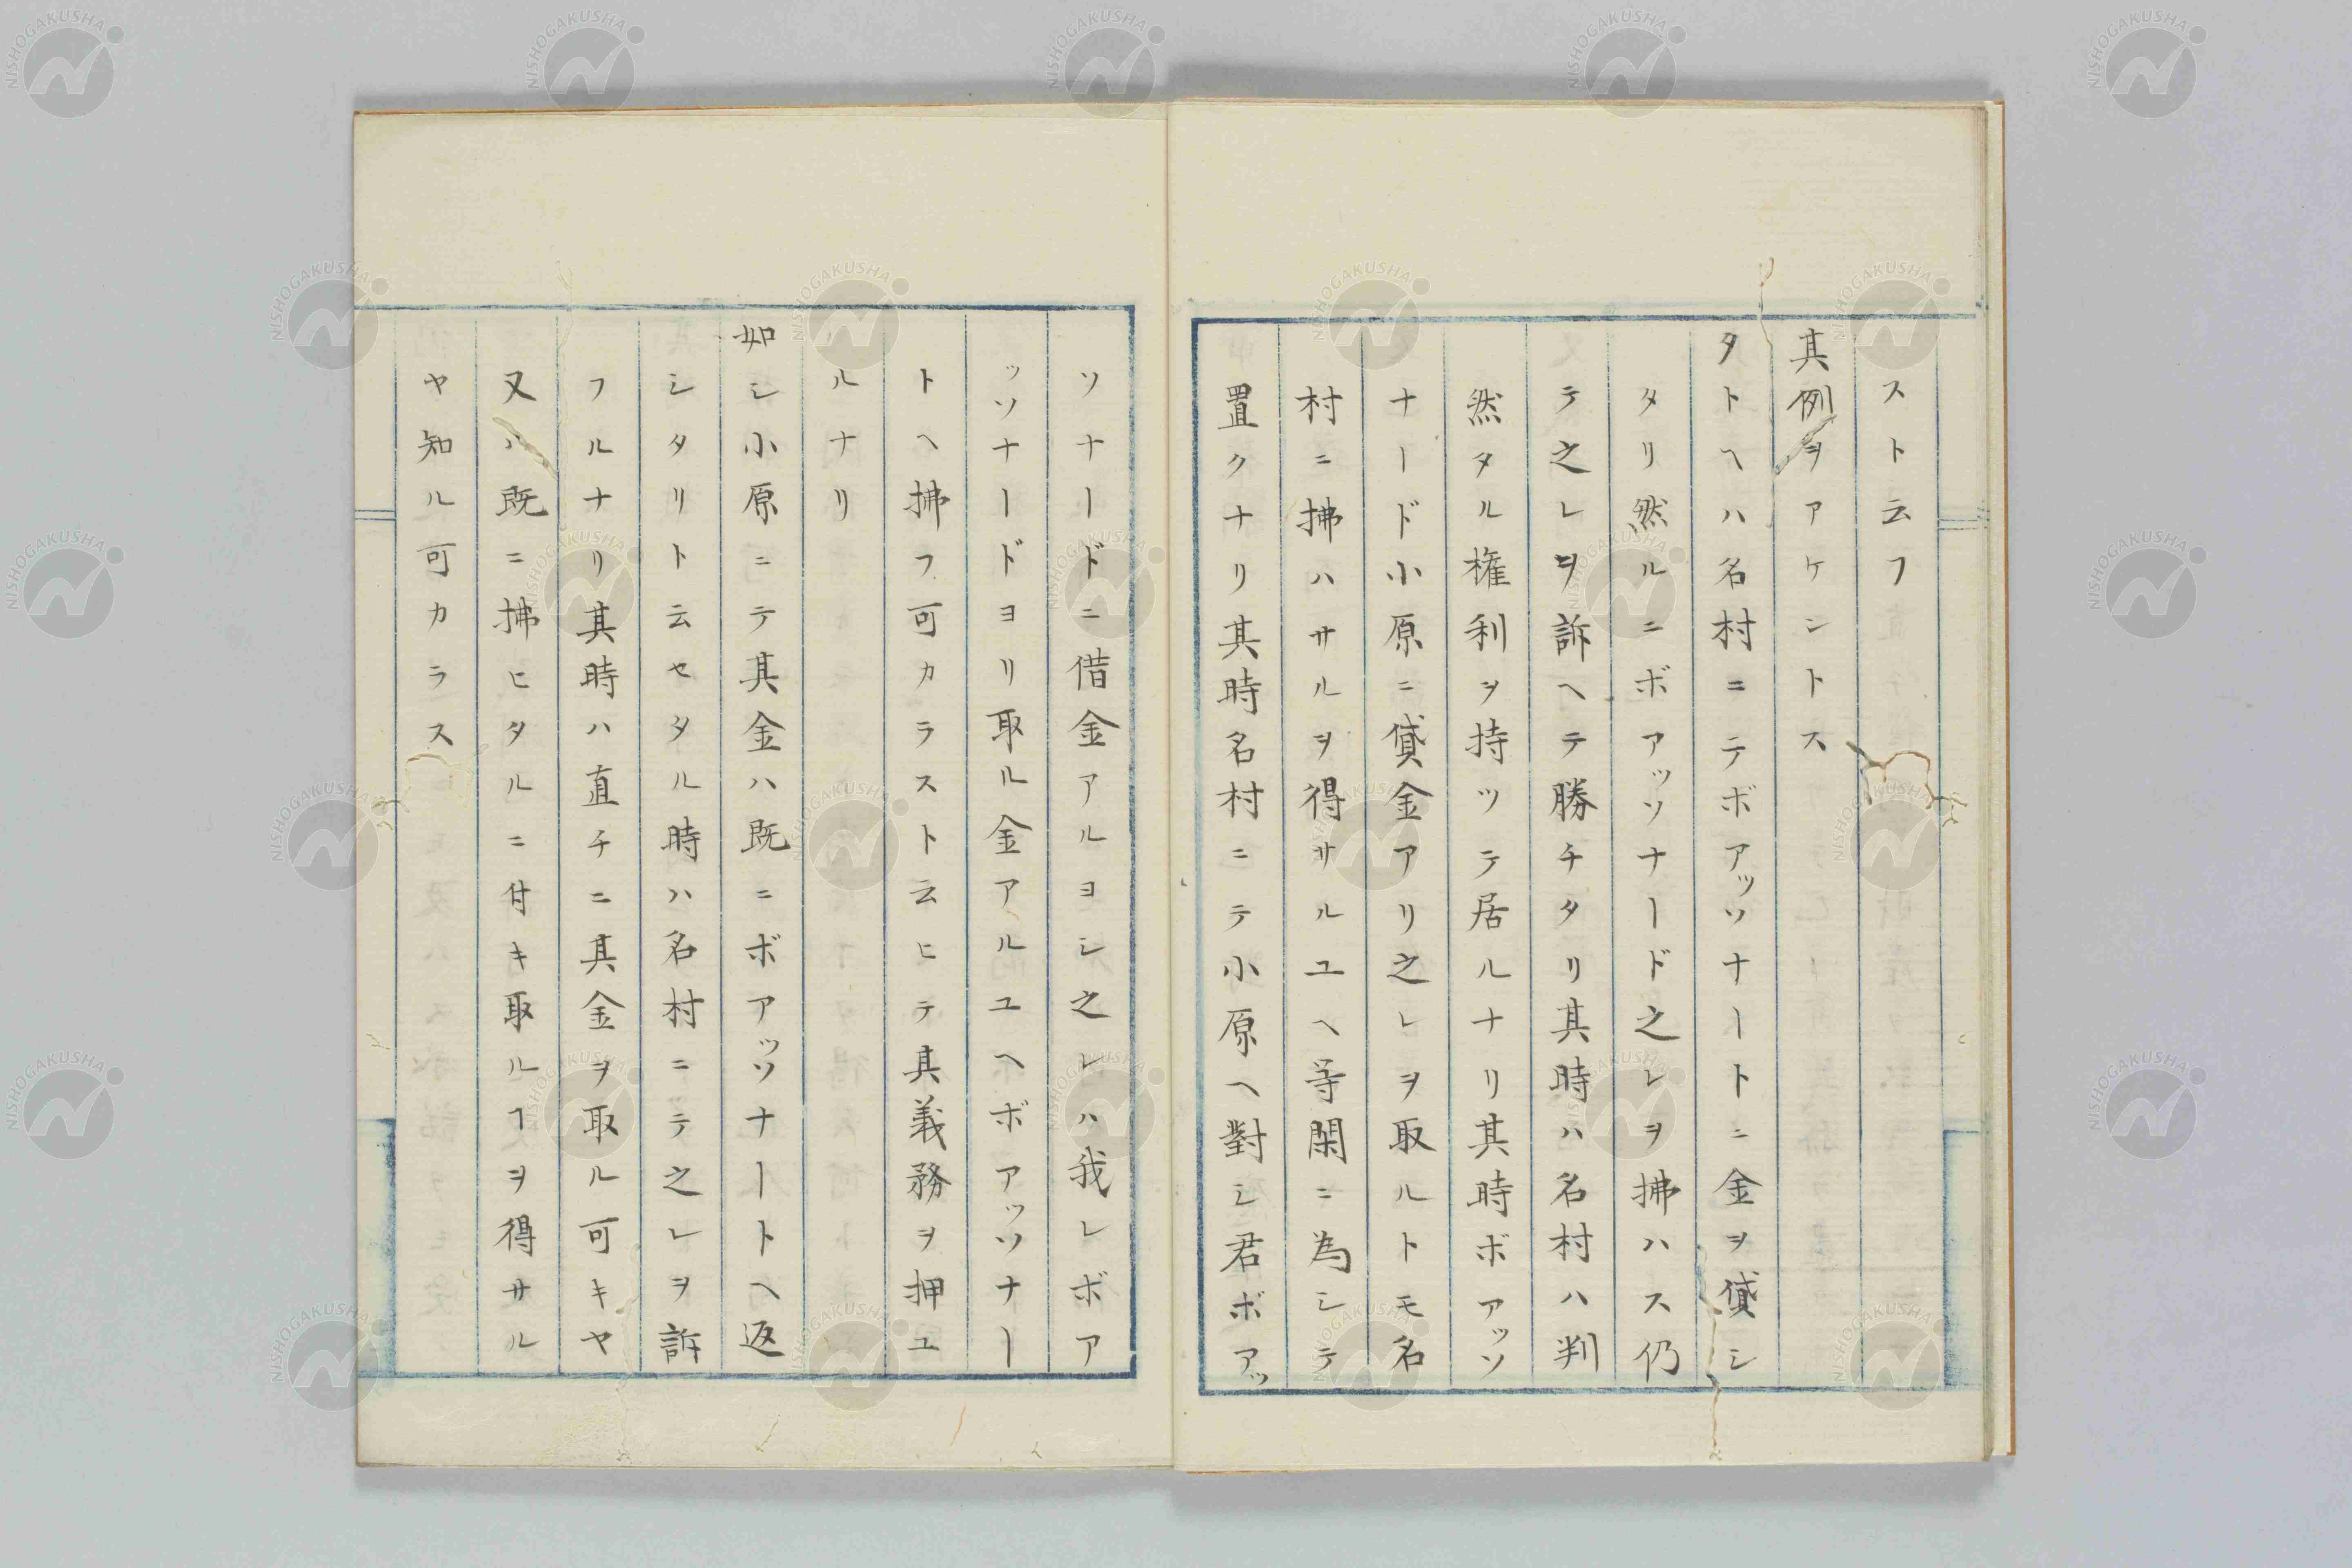 スト云フ
其例ヲアケントス
タトヘハ名村ニテボアッソナートニ金ヲ貸シ
タリ然ルニボアッソナード之レヲ拂ハス仍
テ之レヲ訴ヘテ勝チタリ其時ハ名村ハ判
然タル権利ヲ持ツテ居ルナリ其時ボアッソ
ナード小原ニ貸金アリ之レヲ取ルトモ名
村ニ拂ハサルヲ得サルユヘ等閑ニ為シテ
置クナリ其時名村ニテ小原ヘ對シ君ボアッ
ソナードニ借金アルヨシ之レハ我レボア
ッソナードヨリ取ル金アルユヘボアッソナー
トヘ拂フ可カラスト云ヒテ其義務ヲ押ユ
ルナリ
如シ小原ニテ其金ハ既ニボアッソナートヘ返
シタリト云セタル時ハ名村ニテ之レヲ訴
フルナリ其時ハ直チニ其金ヲ取ル可キヤ
又ハ既ニ拂ヒタルニ付キ取ルヿヲ得サル
ヤ知ル可カラス
NISHOGAKUSHA